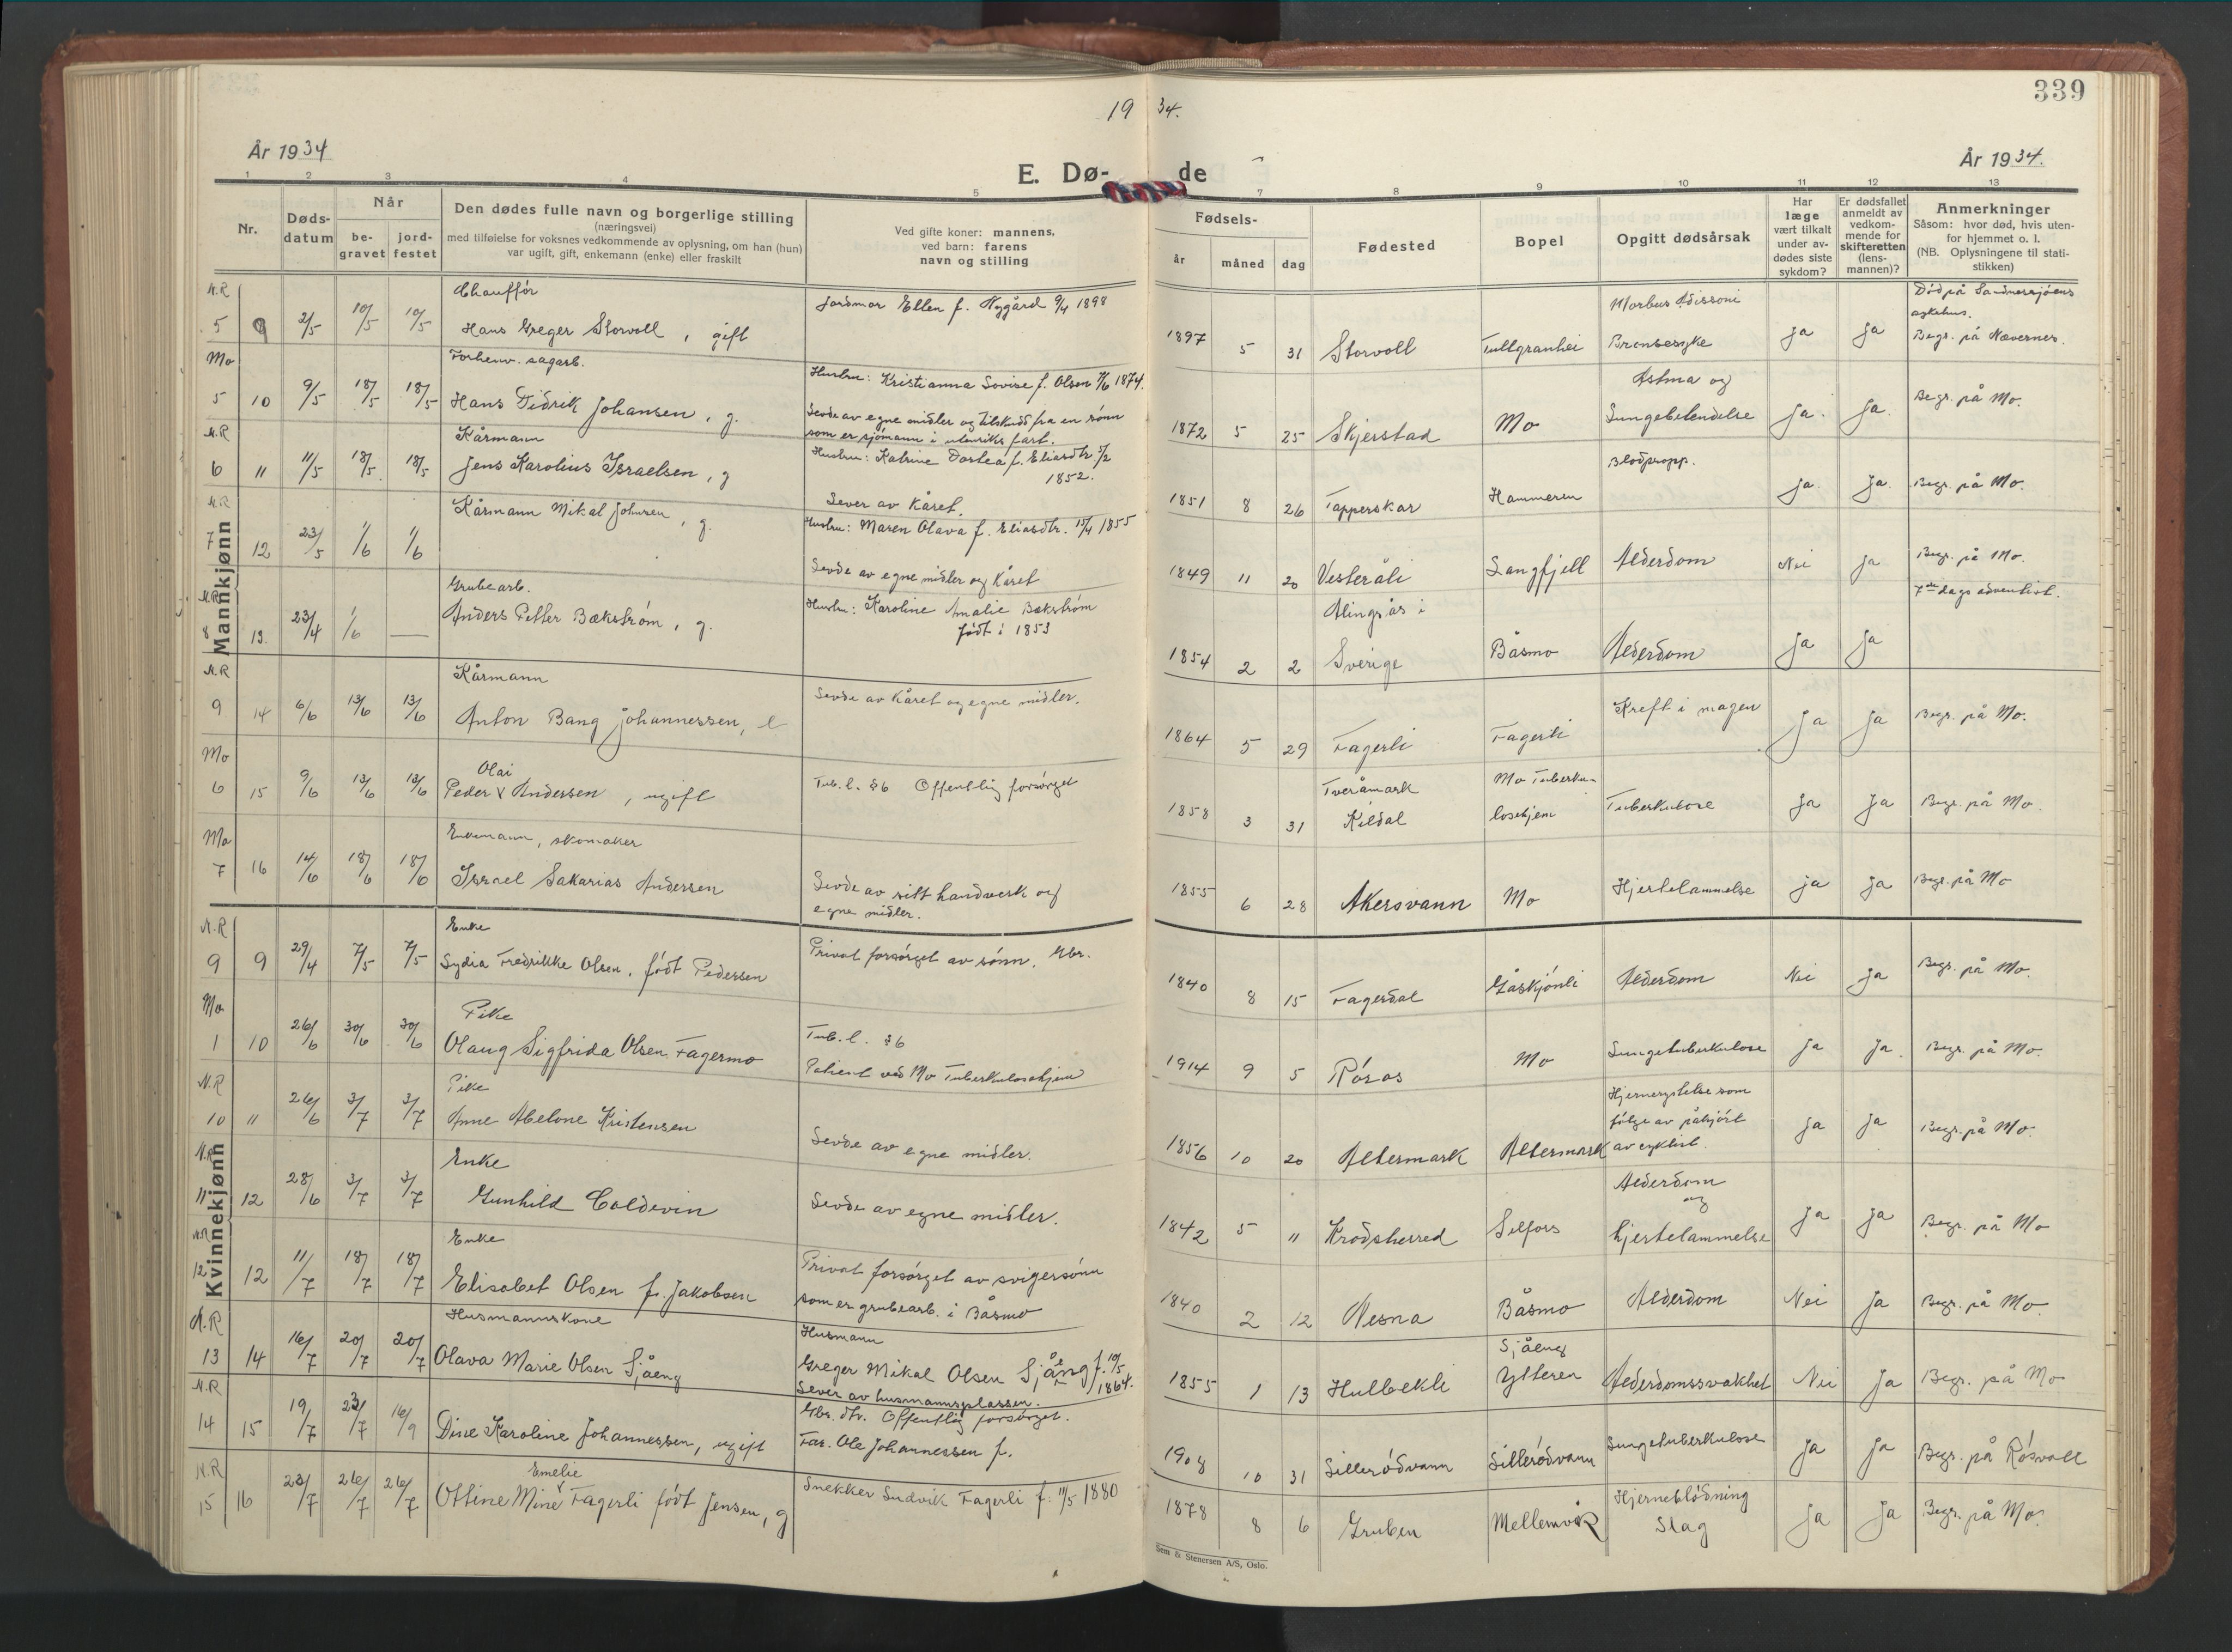 339
19 34.
År 1934
År 1934.
E. Dø- de
1 2 3 4 5 7 8 9 10 11 12 13
Nr.
Døds-datum
Når
be-gravet
jord-festet
Den dødes fulle navn og borgerlige stilling
(næringsvei)
med tilføielse for voksnes vedkommende av oplysning, om han (hun)
var ugift, gift, enkemann (enke) eller fraskilt
Ved gifte koner: mannens,
ved barn: farens
navn og stilling
Fødsels-
år måned dag
Fødested
Bopel
Opgitt dødsårsak
Har
læge
vært tilkalt
under av-
dødes siste
sykdom?
Er dødsfallet
anmeldt av
vedkom-
mende for
skifteretten
(lens-
mannen)?
Anmerkninger
Såsom: hvor død, hvis uten-
for hjemmet o. l.
(NB. Oplysningene til stati-
stikken)
Mannkjønn
N.R Chauffør
5 9 2/5 10/5 10/5 Hans Greger Storvoll, gift
Jordmor Ellen f. Nygård 9/4 1898
1897 5 31 Storvoll Tullgranhei
Morbus Adissoni
Bronsesyke
ja ja
Død på Sandnessjøens
sykehus.
Begr. på Nevernes.
Mo Forhenv. sagarb.
5 10 9/5 18/5 18/5 Hans Didrik Johansen, g.
Hustru: Kristianna Lovise f. Olsen 1874.
Levde av egne midler og tilskudd fra en sønn
som er sjømann i utenriks fart.
1872 5 25 Skjerstad Mo
Astma og
Lungebetendelse
Ja. Ja. Begr. på Mo.
N.R Kårmann
6 11 11/5 18/5 18/5 Jens Karolius Israelsen, g
Hustru: Katrine Dortea f. Eliasdtr.
1852.
Lever av Kåret.
1851 8 26 Tapperskar Hammeren Blodpropp. Ja Ja. Begr. på Mo.
N.R Kårmann Mikal Johnsen, g.
7 12 23/5 1/6 1/6
Hustru: Maren Olava f. Eliasdtr. 15/4 1855
Levde av egne midler og Kåret
1849 11 20 Vesteråli Langfjell Alderdom Nei Ja Begr. på Mo.
N.R Grubearb.
8 13. 23/4 1/6 — Anders Petter Bækstrøm, g.
Hustru: Karoline Amalie Bækstrøm
født i 1853
1854 2 2 Alingsås i
Sverige Båsmo Alderdom Ja Ja 7de dags adventist.
N.R Kårmann
9 14 6/6 13/6 13/6 Anton Bang Johannessen, e
Levde av Kåret og egne midler.
1864 5 29 Fagerli Fagerli Kreft i magen Ja Ja Begr. på Mo.
Mo Olai
6 15 9/6 13/6 13/6 Peder Andersen, ugift
Tub. l. §6 Offentlig forsørget
1858 3 31 Tveråmark
Kildal
Mo Tuberku-
losehjem Tuberkulose Ja Ja Begr. på Mo.
Mo Enkemann, skomaker
7 16 14/6 18/6 18/6 Israel Sakarias Andersen
Levde av sitt handverk og
egne midler.
1855 6 28 Akersvann Mo Hjertelammelse ja ja Begr. på Mo
Kvinnekjønn
N.R Enke
9 9 29/4 7/5 7/5 Lydia Fredrikke Olsen, født Pedersen
Privat forsørget av sønn. Gbr.
1840 8 15 Fagerdal Gåskjønli Alderdom Nei Ja Begr. på Mo.
Mo Pike
1 10 26/6 30/6 30/6 Olaug Sigfrida Olsen Fagermo
Tub. l. §6
Patient ved Mo Tuberkulosehjem
1914 9 5 Røros Mo Lungetuberkulose Ja Ja. Begr. på Mo.
N.R Pike
10 11 26/6 3/7 3/7 Anne Abelone Kristensen
Levde av egne midler.
1856 10 20 Altermark Altermark
Hjernerystelse som
følge av påkjørt
av cyklist.
Ja Ja Begr. på Mo.
N.R Enke
11 12 28/6 3/7 3/7 Gunhild Coldevin
Levde av egne midler.
1842 5 11 Krødsherred Selfors
Alderdom
og
hjertelammelse
Ja Ja Begr. på Mo
N.R Enke
12 12 11/7 18/7 18/7 Elisabet Olsen f. Jakobsen
Privat forsørget av svigersønn
som er grubearb. i Båsmo
1840 2 12 Nesna Båsmo Alderdom Nei Ja Begr. på Mo.
N.R Husmannskone
13 14 16/7 20/7 20/7 Olava Marie Olsen Sjåeng
Husmann
Greger Mikal Olsen Sjåeng f. 10/5
1864.
Lever av husmannsplassen.
1855 1 13 Hulbekli
Sjåeng
Ytteren Alderdomssvakhet Nei Ja Begr. på Mo
N.R
14 15 19/7 23/7 16/9 Dine Karoline Johannessen, ugift
Gbr. dtr. Offentlig forsørget.
Far. Ole Johannessen f.
1908 10 31 Lillerødvann Lillerødvann Lungetuberkulose Ja Ja Begr. på Røsvoll
N.R Emelie
15 16 23/7 26/7 26/7 Ottine Mine Fagerli født Jensen, g
Snekker Ludvik Fagerli f. 11/5 1880
1878 8 6 Gruben Mellomvik
Hjerneblødning
Slag
Ja Ja Begr. på Mo.
Sem & Stenersen A/S, Oslo.